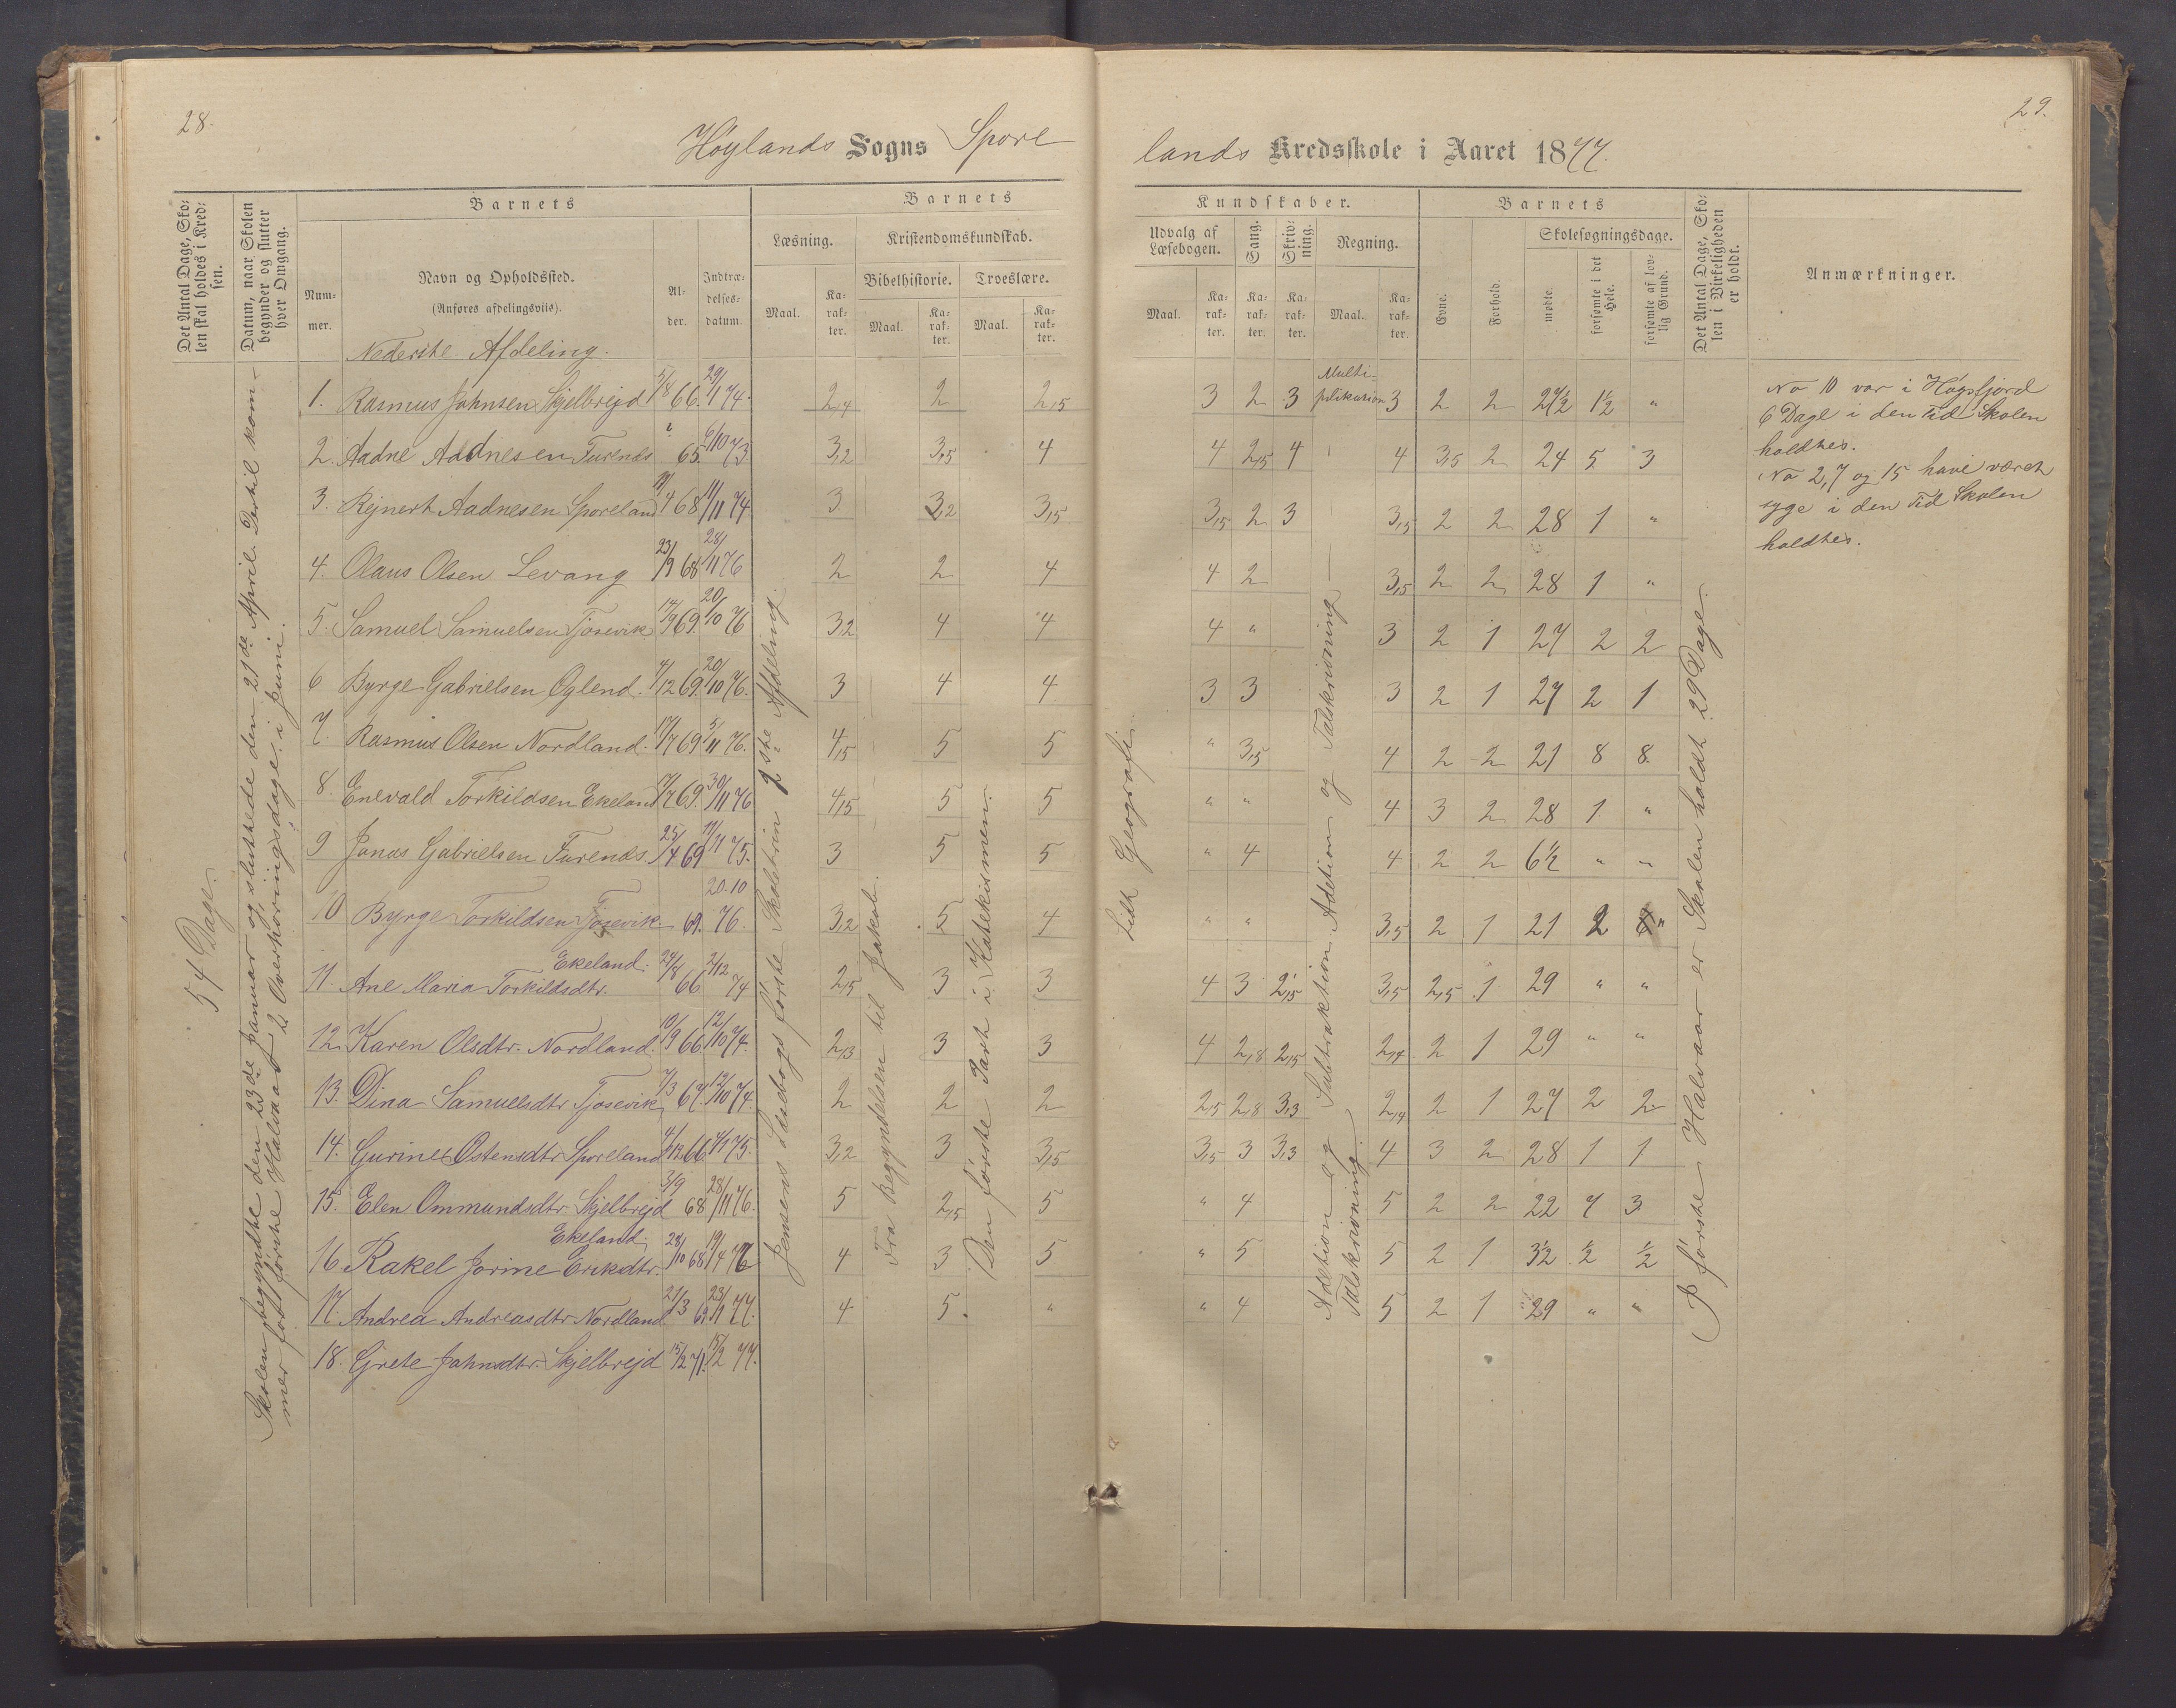 28.
29.
Høylands Sogns Spore
lands Kredsskole i Aaret 1877.
Det Antal Dage, Skolen skal holdes i Kredsen.
Datum, naar Skolen begynder og slutter hver Omgang.
Barnets
Nummer.
Navn og Opholdssted.
(Anføres afdelingsviis).
Alder.
Indtrædelsesdatum.
Barnets
Læsning.
Maal.
Karakter.
Kristendomskundskab.
Bibelhistorie.
Maal.
Karakter.
Troeslære.
Maal.
Karakter.
Kundskaber.
Udvalg af Læsebogen.
Maal.
Karakter.
Sang.
Karakter.
Skrivning.
Karakter.
Regning.
Maal.
Karakter.
Barnets
Evne.
Forhold.
Skolesøgningsdage.
mødte.
forsømte i det Hele.
forsømte af lovlig Grund.
Det Antal Dage, Skolen i Virkeligheden er holdt.
Anmærkninger.
54 Dage.
Skolen begyndte den 23de Januar og sluttede den 21de April. Dertil kom-
mer for første Halvaar 2 Overhøringsdage i Juni.
Nederste Afdeling.
Jensens Læsebogs første Skoletrin 2ste Afdeling.
Fra Begyndelsen til Jakob.
Den første Part i Katekismen.
Lidt Geografi.
Multiplikation
Subtraktion. Adetion og Talskrivning
Adetion og Talskrivning.
I første Halvaar er Skolen holdt 29 Dage.
1. Rasmus Johnsen Skjelbrejd 5/8 66. 29/1 74. 2,4 2 2,15 3 2 3 3 2 2 27½ 1½ "
2. Aadne Aadnesen Furenes 65. 6/10 73 3,2 3,5 4 4 2,15 4 4 3,5 2 24 5 3
3. Rejnert Aadnesen Sporeland 68 11/11 74 3 3,2 3,15 3,15 2 3 3,5 2 2 28 1 "
4. Olaus Olsen Levang 23/9 68 28/11 76 2 2 4 4 2 3,5 2 2 28 1 "
5. Samuel Samuelsen Tjosevik 69. 20/10 76 3,2 4 4 4 " 3 2 1 27 2 2
6 Byrge Gabrielsen Oglend. 4/12 69. 20/10 76. 3 4 4 3 3 3 2 1 27 2 1
7. Rasmus Olsen Nordland. 17/7 69 5/11 76. 4,15 5 5 " 3,15 4 2 2 21 8 8
8. Enevald Torkildsen Ekeland 69. 30/11 76 4,15 5 5 " " 4 3 2 28 1 "
9 Jonas Gabrielsen Furenes. 25/4 69 11/11 75. 3 5 5 " 4 4 2 2 6½ " "
10 Byrge Torkildsen Tjosevik 69. 20.10 76. 3,2 5 4 " " 3,5 2 1 21 2 "
11. Ane Maria Torkildsdtr. Ekeland. 66 2/12 74 2,15 3 3 4 3 2,15 3,5 2,5 1 29 " "
12. Karen Olsdtr. Nordland. 10/9 66. 12/10 74. 2,3 3 3 4 2,8 2,15 2,4 2 1 29 " "
13. Dina Samuelsdtr. Tjosevik 7/3 67. 12/10 74. 2 2 2 2,5 2,8 3,3 2,4 2 1 27 2 2
14. Gurine Ostensdtr. Sporeland 4/12 66. 75. 3,2 3 3,5 3,5 3 3,3 4 3 2 28 1 1
15. Elen Ommundsdtr. Skjelbrejd 3/9 68 28/11 76. 5 2,15 5 " 4 5 2 2 22 7 3
16 Rakel Jorine Eriksdtr. Ekeland. 28/10 68 19/4 4 3 5 " 5 5 2 1 3½ ½ ½
17. Andrea Andreasdtr. Nordland 21/3 23/1 77. 4 5. " " 4 5 2 1 29 " "
18. Grete Johnsdtr. Skjelbrejd 15/2 71. 15/2 77.
No 10 var i Høgsfjord
6 Dage i den Tid Skolen
holdtes.
No 2, 7 og 15 have været
syge i den Tid Skolen
holdtes.